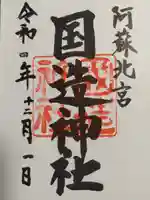 阿蘇北宮
国造神社
令和四年十二月一日